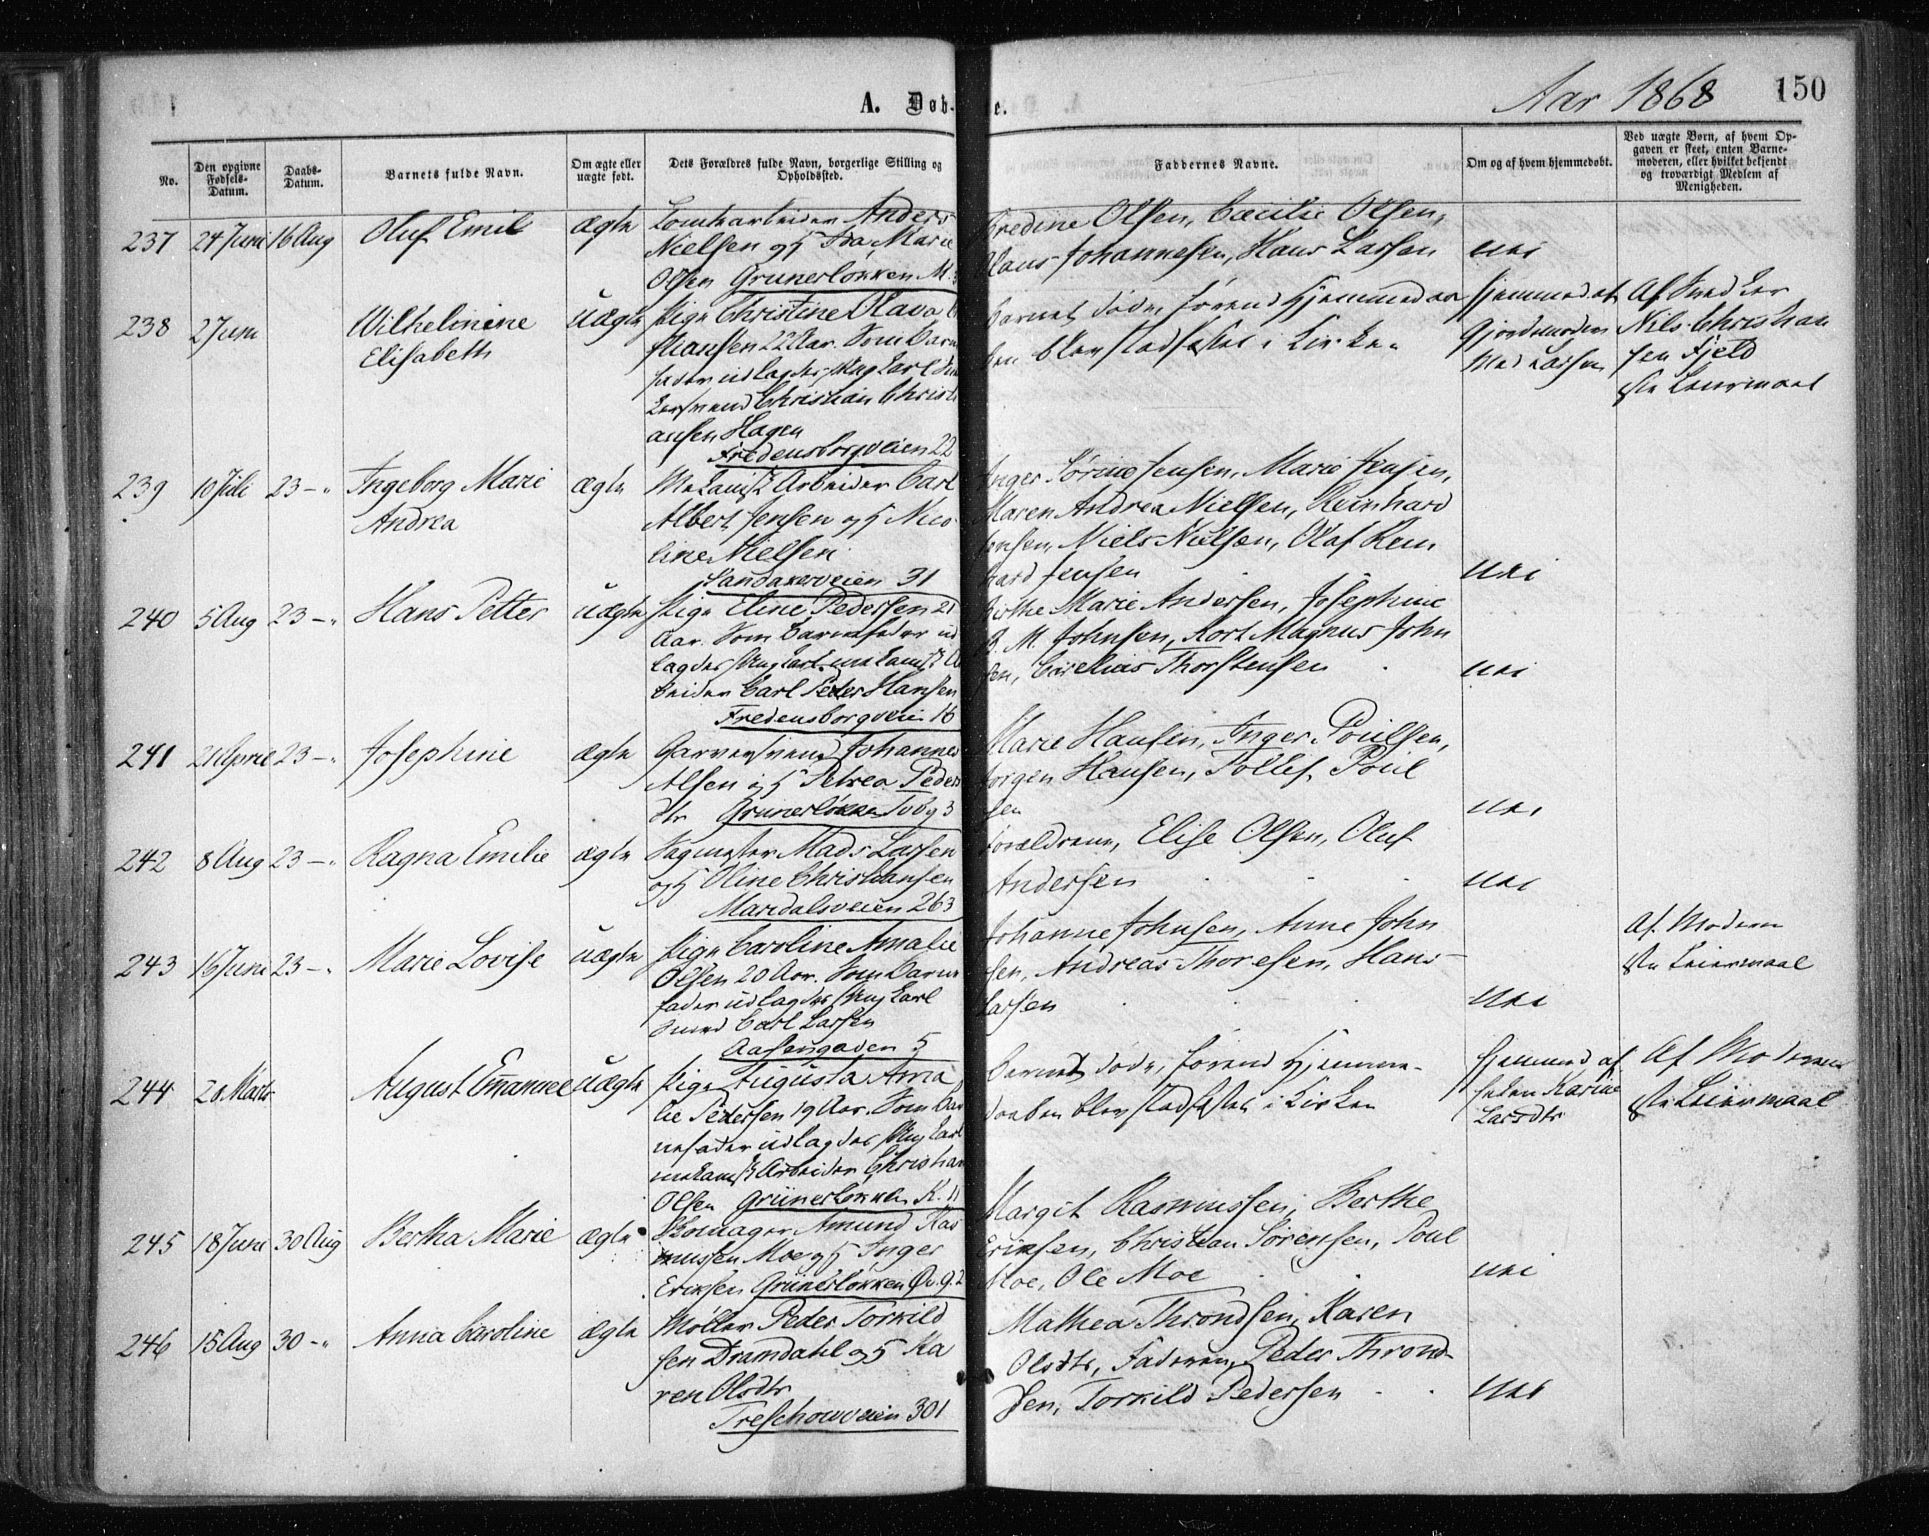 A. Døb-
e.
Aar 1868
150
No.
Den opgivne Fødsels-Datum.
Daabs-Datum.
Barnets fulde Navn.
Om ægte eller uægte født.
Dets Forældres fulde Navn, borgerlige Stilling og Opholdssted.
Faddernes Navne.
Om og af hvem hjemmedøbt.
Ved uægte Børn, af hvem Op-
gaven er skeet, enten Barne-
moderen, eller hvilket bekjendt
og troværdigt Medlem af
Menigheden.
237 24 Juni 16 Aug Oluf Emil ægte
Anders
Nielsen og H Marie
Olsen Grunerløkken M.
Fredine Olsen, Cæcilie Olsen,
Johannesen, Hans Larsen
Nei
238 2 Juni Wilhelmine
Elisabeth
uægte
Pige Christine Olava
stiansen 22 Aar. Som Barne
fader udlagdes Ung Karl
kersvend Christian Christi
ansen Hagen
Fredensborgveien 22
Barnet døde, førend Hjemmedaa
ben blev stadfæstet i Kirken
Hjemmedøbt
Gjordemoder
Mad Larsen
Af Snedker
Nils Christian
sen Fjeld
1ste Leiermaal
239 10 Juli 23 -„ Ingeborg Marie
Andrea
ægte
Mekanisk Arbeider Carl
Albert Jensen og H Nico
line Nielsen
Sandakerveien 31
Inger Sørine Jensen, Marie Jensen,
Maren Andrea Nielsen, Reinhard
Jensen, Niels Nielsen, Olaf Rein
hard Jensen
Nei
240 5 Aug 23 -„ Hans Petter uægte
Pige Eline Pedersen 21
Aar. Som Barnefader ud
lagdes Ung Karl mekanisk A
beider Carl Peder Hansen
Fredensborgveien 16
Berthe Marie Andersen, Josephine
B. M. Johnsen, Kort Magnus John
sen, Cornelius Thorstensen
Nei
241 21 April 23 -„ Josephine ægte
Garversvend Johannes
Alsen og H Petrea Peders
dtr Grunerløkken Tobg 3
Marie Hansen, Inger Poulsen,
Jørgen Hansen, Tollef Poul
sen
Nei
242 8 Aug 23 -„ Ragna Emilie ægte
Sagmester Mads Larsen
og H Oline Christiansen
Maridalsveien 263
Forældrene, Elise Olsen, Oluf
Andersen
Nei
243 16 Juni 23 -„ Marie Lovise uægte
Pige Caroline Amalie
Olsen 20 Aar. Som Barne
fader udlagdes Ung Karl
Smed Carl Larsen
Aasengaden 5
Johanne Johnsen, Anne John
sen, Andreas Thoresen, Hans
Larsen
Nei
Af Modern
1ste Leiermaal
244 20 Marts August Emanuel uægte
Pige Augusta Ama
lie Pedersen 19 Aar. Som Bar
nefader udlagdes Ung Karl
mekanisk Arbeider Christian
Olsen Grünerløkken K. 11
Barnet døde, førend Hjemme-
daaben blev stadfæstet i Kirken
Hjemmed af
Karine
Larsdtr
Af Moderen
1ste Leiermaal
245 18 Juni 30 Aug Bertha Marie ægte
Skomager Amund Ras
mussen Moe og H Inger
Eriksen Grünerløkken Qv. 9. 2
Margit Rasmussen, Berthe
Eriksen, Christian Sørensen, Poul
Moe, Ole Moe
Nei
246 15 Aug 30 -„ Anna Caroline ægte
Møller Peder Torkild
sen Dramdahl og H Ka
ren Olsdtr
Treschowveien 301
Mathea Throndsen, Karen
Olsdtr, Faderen, Peder Thrond-
sen, Torkild Pedersen
Nei